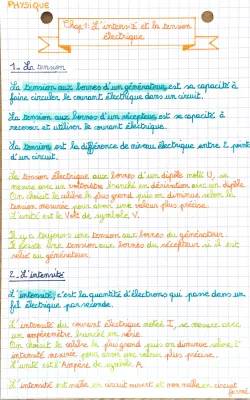 PHYSIQUE
Chap 1: L'intensité et la tension
électrique
1 - La tension
La tension aux bornes d'un générateur est sa capacité à
faire circuler le courant électrique dans un circuit.
La tension aux bornes d'un récepteur est sa capacité à
recevoir et utiliser le courant électrique.
La tension est la différence de niveau électrique entre 2 points
d'un circuit.
La tension électrique aux bornes d'un dipôle noté U, se
mesure avec un voltmètre branché en dérivation avec un dipôle
On choisit le calibre le plus grand puis on diminue selon la
tension mesurée pour avoir une valeur plus précise.
L'unité est le Volt de symbole V.
Il y a toujours une tension aux bornes du générateur
Il existe une tension aux bornes du récepteur si il est
relié au générateur.
2 - L'intensité
L'intensité, c'est la quantité d'électrons qui passe dans un
fil électrique par seconde.
L'intensité du courant électrique notée I, se mesure avec
un ampèremètre branché en série.
On choisit le calibre le plus grand puis on diminue selon l'
intensité mesurée pour avoir une valeur plus précise.
L'unité est l'Ampère de symbole A
L'intensité est nulle en circuit ouvert et non nulle en circuit
fermé